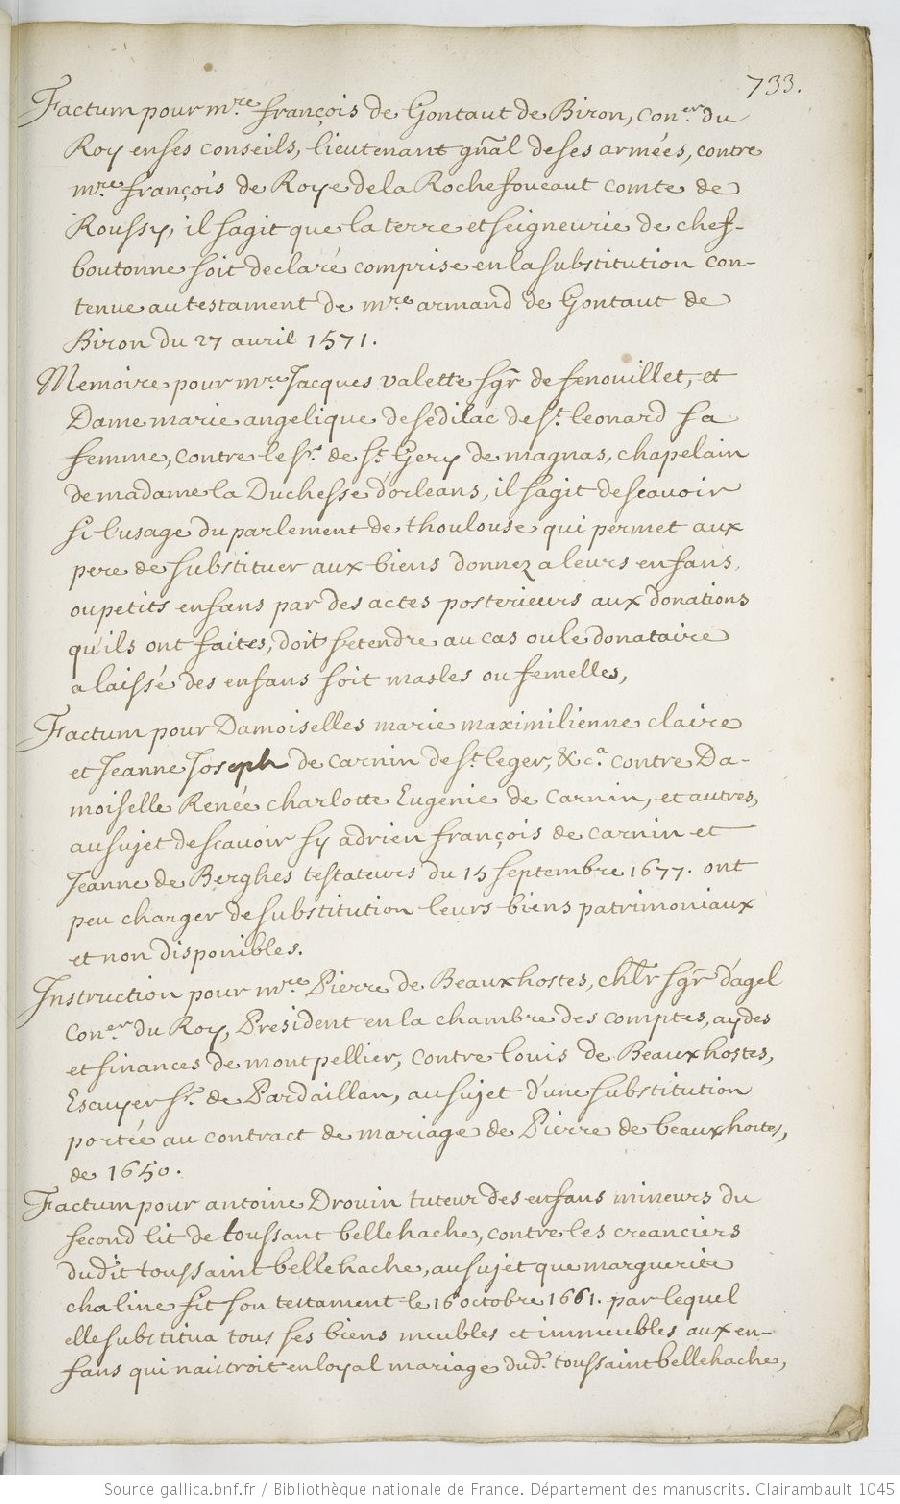 733.
Factum pour mre françois de Gontaut de Biron, coner du
Roy en ses conseils, lieutenant gñal de ses armées, contre
mre françois de Roye de la Rochefoucaut comte de
Roussy, il sagit que la terre et seigneurie de chef-
boutonne soit declaré comprise en la substitution con-
tenue au testament de mre armand de Gontaut de
Biron du 27 avril 1571.
Memoire pour mre Jacques valette sgr de fenouillet, et
Dame marie angelique de sedilac de st. leonard sa
femme, contre le sr. de st Gery de magnas, chapelain
de madame la Duchesse d'orleans, il sagit de scavoir
si l'usage du parlement de thoulouse qui permet aux
pere de substituer aux biens donnez a leurs enfans,
ou petits enfans par des actes posterieurs aux donations
qu'ils ont faites, doit setendre au cas ou le donataire
a laissé des enfans soit masles ou femelles,
Factum pour Damoiselles marie maximilienne claire
et Jeanne Joseph de carnin de st. leger, &ca. contre Da-
moiselle Renée charlotte Eugenie de carnin, et autres,
au sujet de scavoir sy adrien françois de carnin et
Jeanne de Berghes testateurs du 15 septembre 1677. ont
peu charger de substitution leurs biens patrimoniaux
et non disponibles.
Instruction pour mre Pierre de Beauxhostes, chlr sgr d'agel
Coner du Roy, President en la chambre des comptes, aydes
et finances de montpellier, contre louis de Beauxhostes,
Escuyer sr. de Pardaillan, au sujet d'une substitution
portée au contract de mariage de Pierre de beauxhostes,
de 1650.
Factum pour antoine Drouin tuteur des enfans mineurs du
second lit de toussant bellehache, contre les creanciers
dudit toussaint bellehache, au sujet que marguerite
chaline fit son testament le 16 octobre 1661. par lequel
elle substitua tous ses biens meubles et immeubles aux en-
fans qui naistroit en loyal mariage dud. toussaint bellehache,
Source gallica.bnf.fr / Bibliothèque nationale de France. Département des manuscrits. Clairambault 1045